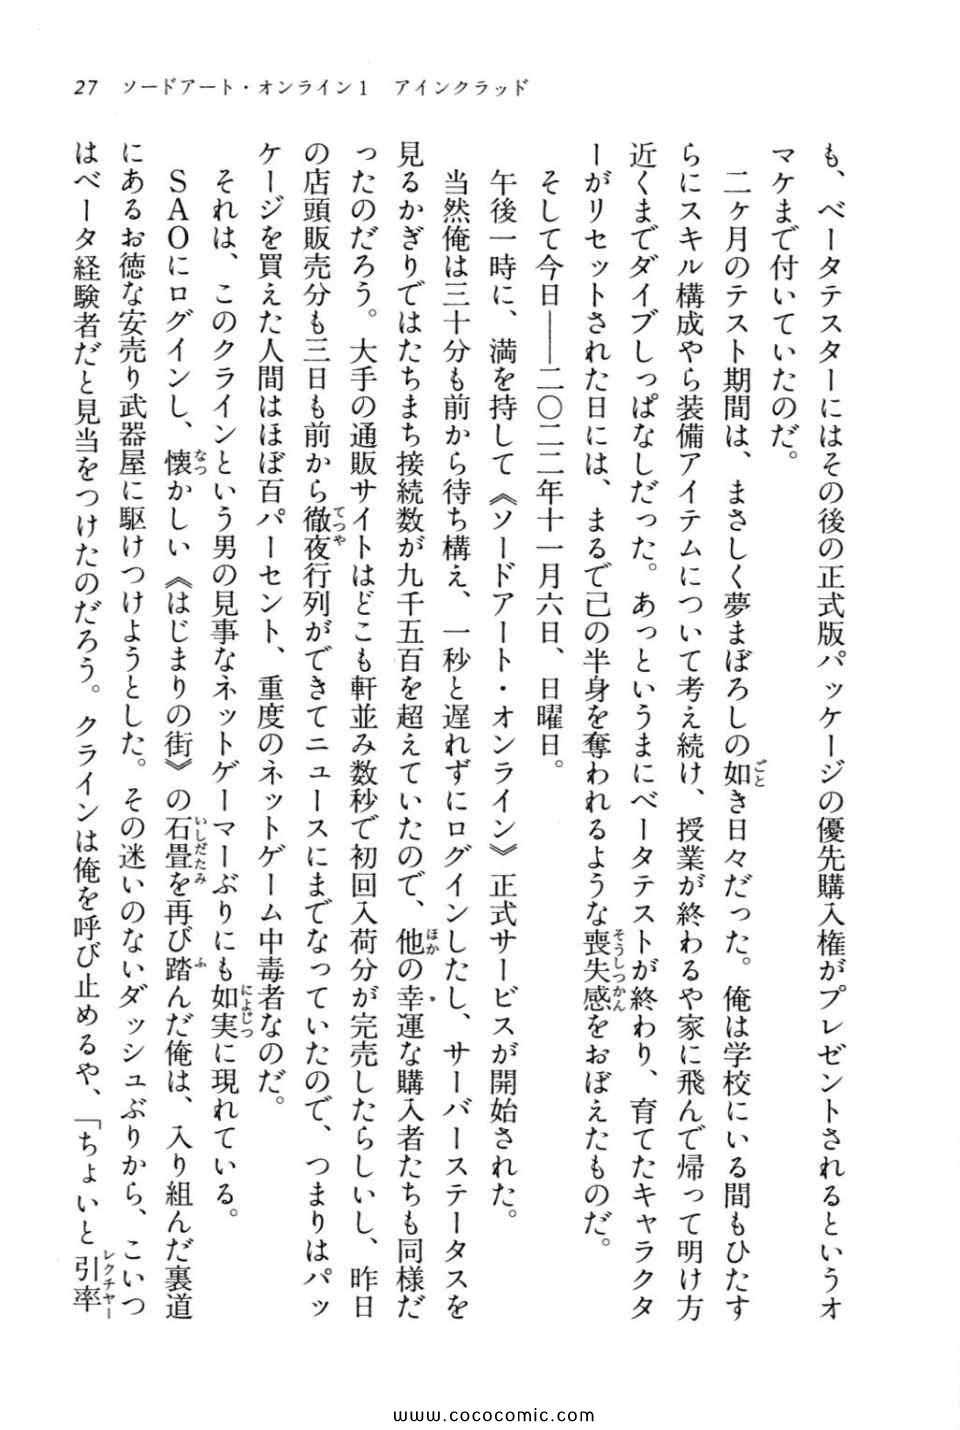 27　ソードアート・オンライン1　アインクラッド
も、ベータテスターにはその後の正式版パッケージの優先購入権がプレゼントされるというオ
マケまで付いていたのだ。
　二ヶ月のテスト期間は、まさしく夢まぼろしの如き日々だった。俺は学校にいる間もひたす
らにスキル構成やら装備アイテムについて考え続け、授業が終わるや家に飛んで帰って明け方
近くまでダイブしっぱなしだった。あっというまにベータテストが終わり、育てたキャラクタ
ーがリセットされた日には、まるで己の半身を奪われるような喪失感をおぼえたものだ。
　そして今日――二〇二二年十一月六日、日曜日。
　午後一時に、満を持して《ソードアート・オンライン》正式サービスが開始された。
　当然俺は三十分も前から待ち構え、一秒と遅れずにログインしたし、サーバーステータスを
見るかぎりではたちまち接続数が九千五百を超えていたので、他の幸運な購入者たちも同様だ
ったのだろう。大手の通販サイトはどこも軒並み数秒で初回入荷分が完売したらしいし、昨日
の店頭販売分も三日も前から徹夜行列ができてニュースにまでなっていたので、つまりはパッ
ケージを買えた人間はほぼ百パーセント、重度のネットゲーム中毒者なのだ。
　それは、このクラインという男の見事なネットゲーマーぶりにも如実に現れている。
　SAOにログインし、懐かしい《はじまりの街》の石畳を再び踏んだ俺は、入り組んだ裏道
にあるお徳な安売り武器屋に駆けつけようとした。その迷いのないダッシュぶりから、こいつ
はベータ経験者だと見当をつけたのだろう。クラインは俺を呼び止めるや、「ちょいと引率
www.cococomic.com